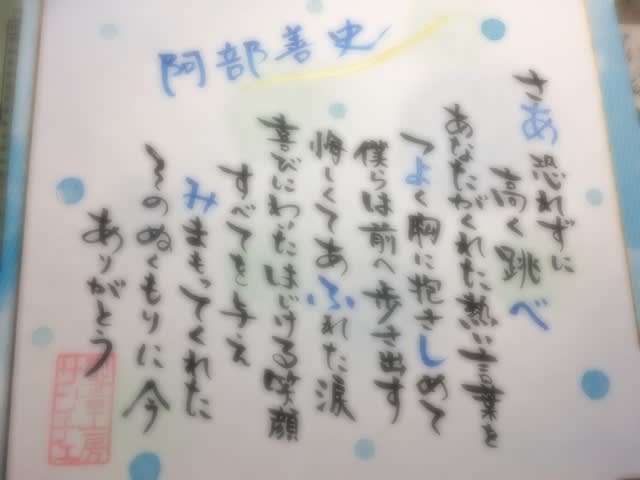 阿部善史
さあ恐れずに
高く跳べ
あなたがくれた熱い言葉を
つよく胸に抱きしめて
僕らは前へ歩き出す
悔しくてあふれた涙
喜びにわいたはじける笑顔
すべてを与え
みまもってくれた
そのぬくもりに今
ありがとう